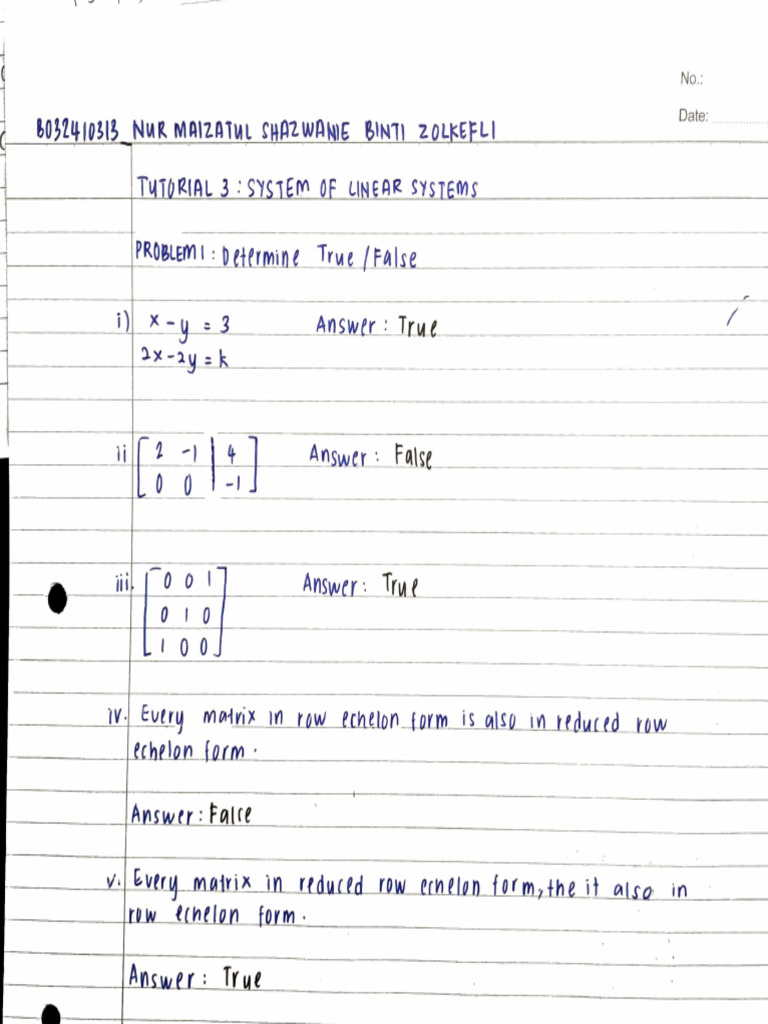 No.:
Date:
B032410313 NUR MAIZATUL SHAZWANIE BINTI ZOLKEFLI
TUTORIAL 3 : SYSTEM OF LINEAR SYSTEMS
PROBLEM 1 : Determine True / False
i) x - y = 3 Answer : True
2x - 2y = k
ii [ 2 -1 | 4 ] Answer : False
[ 0 0 | -1 ]
iii. [ 0 0 1 ] Answer : True
[ 0 1 0 ]
[ 1 0 0 ]
iv. Every matrix in row echelon form is also in reduced row
echelon form .
Answer : False
v. Every matrix in reduced row echelon form, the it also in
row echelon form .
Answer : True